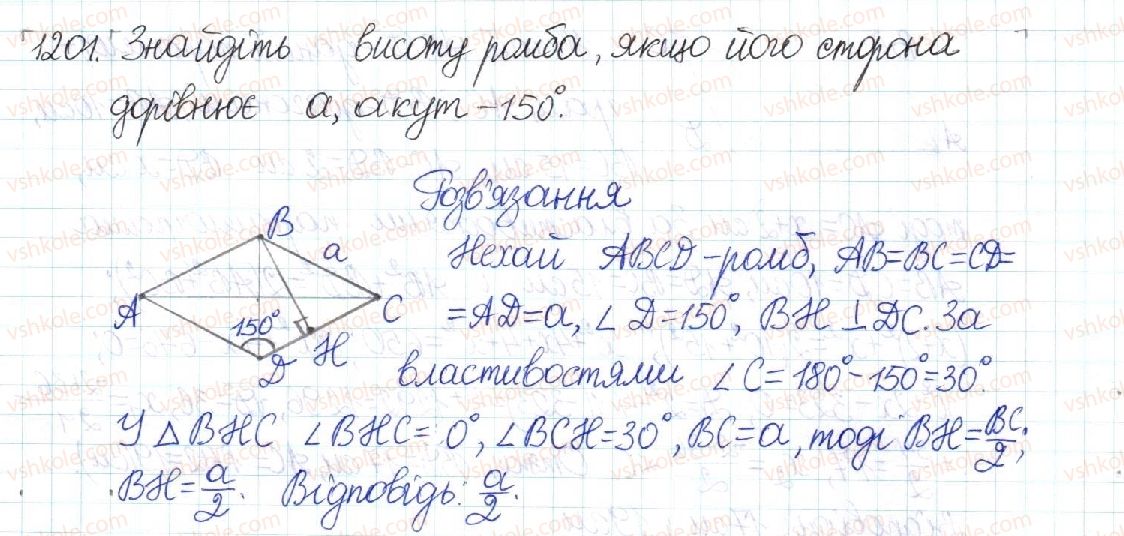 1201. Знайдіть висоту ромба, якщо його сторона
дорівнює a, а кут – 150°.
Розв'язання
B
a
A
C
150°
H
D
Нехай ABCD – ромб, AB=BC=CD=
=AD=a, ∠D=150°, BH⊥DC. За
властивостями ∠C=180°–150°=30°.
У △BHC ∠BHC= 0°, ∠BCH=30°, BC=a, тоді BH=BC/2;
BH=a/2. Відповідь: a/2.